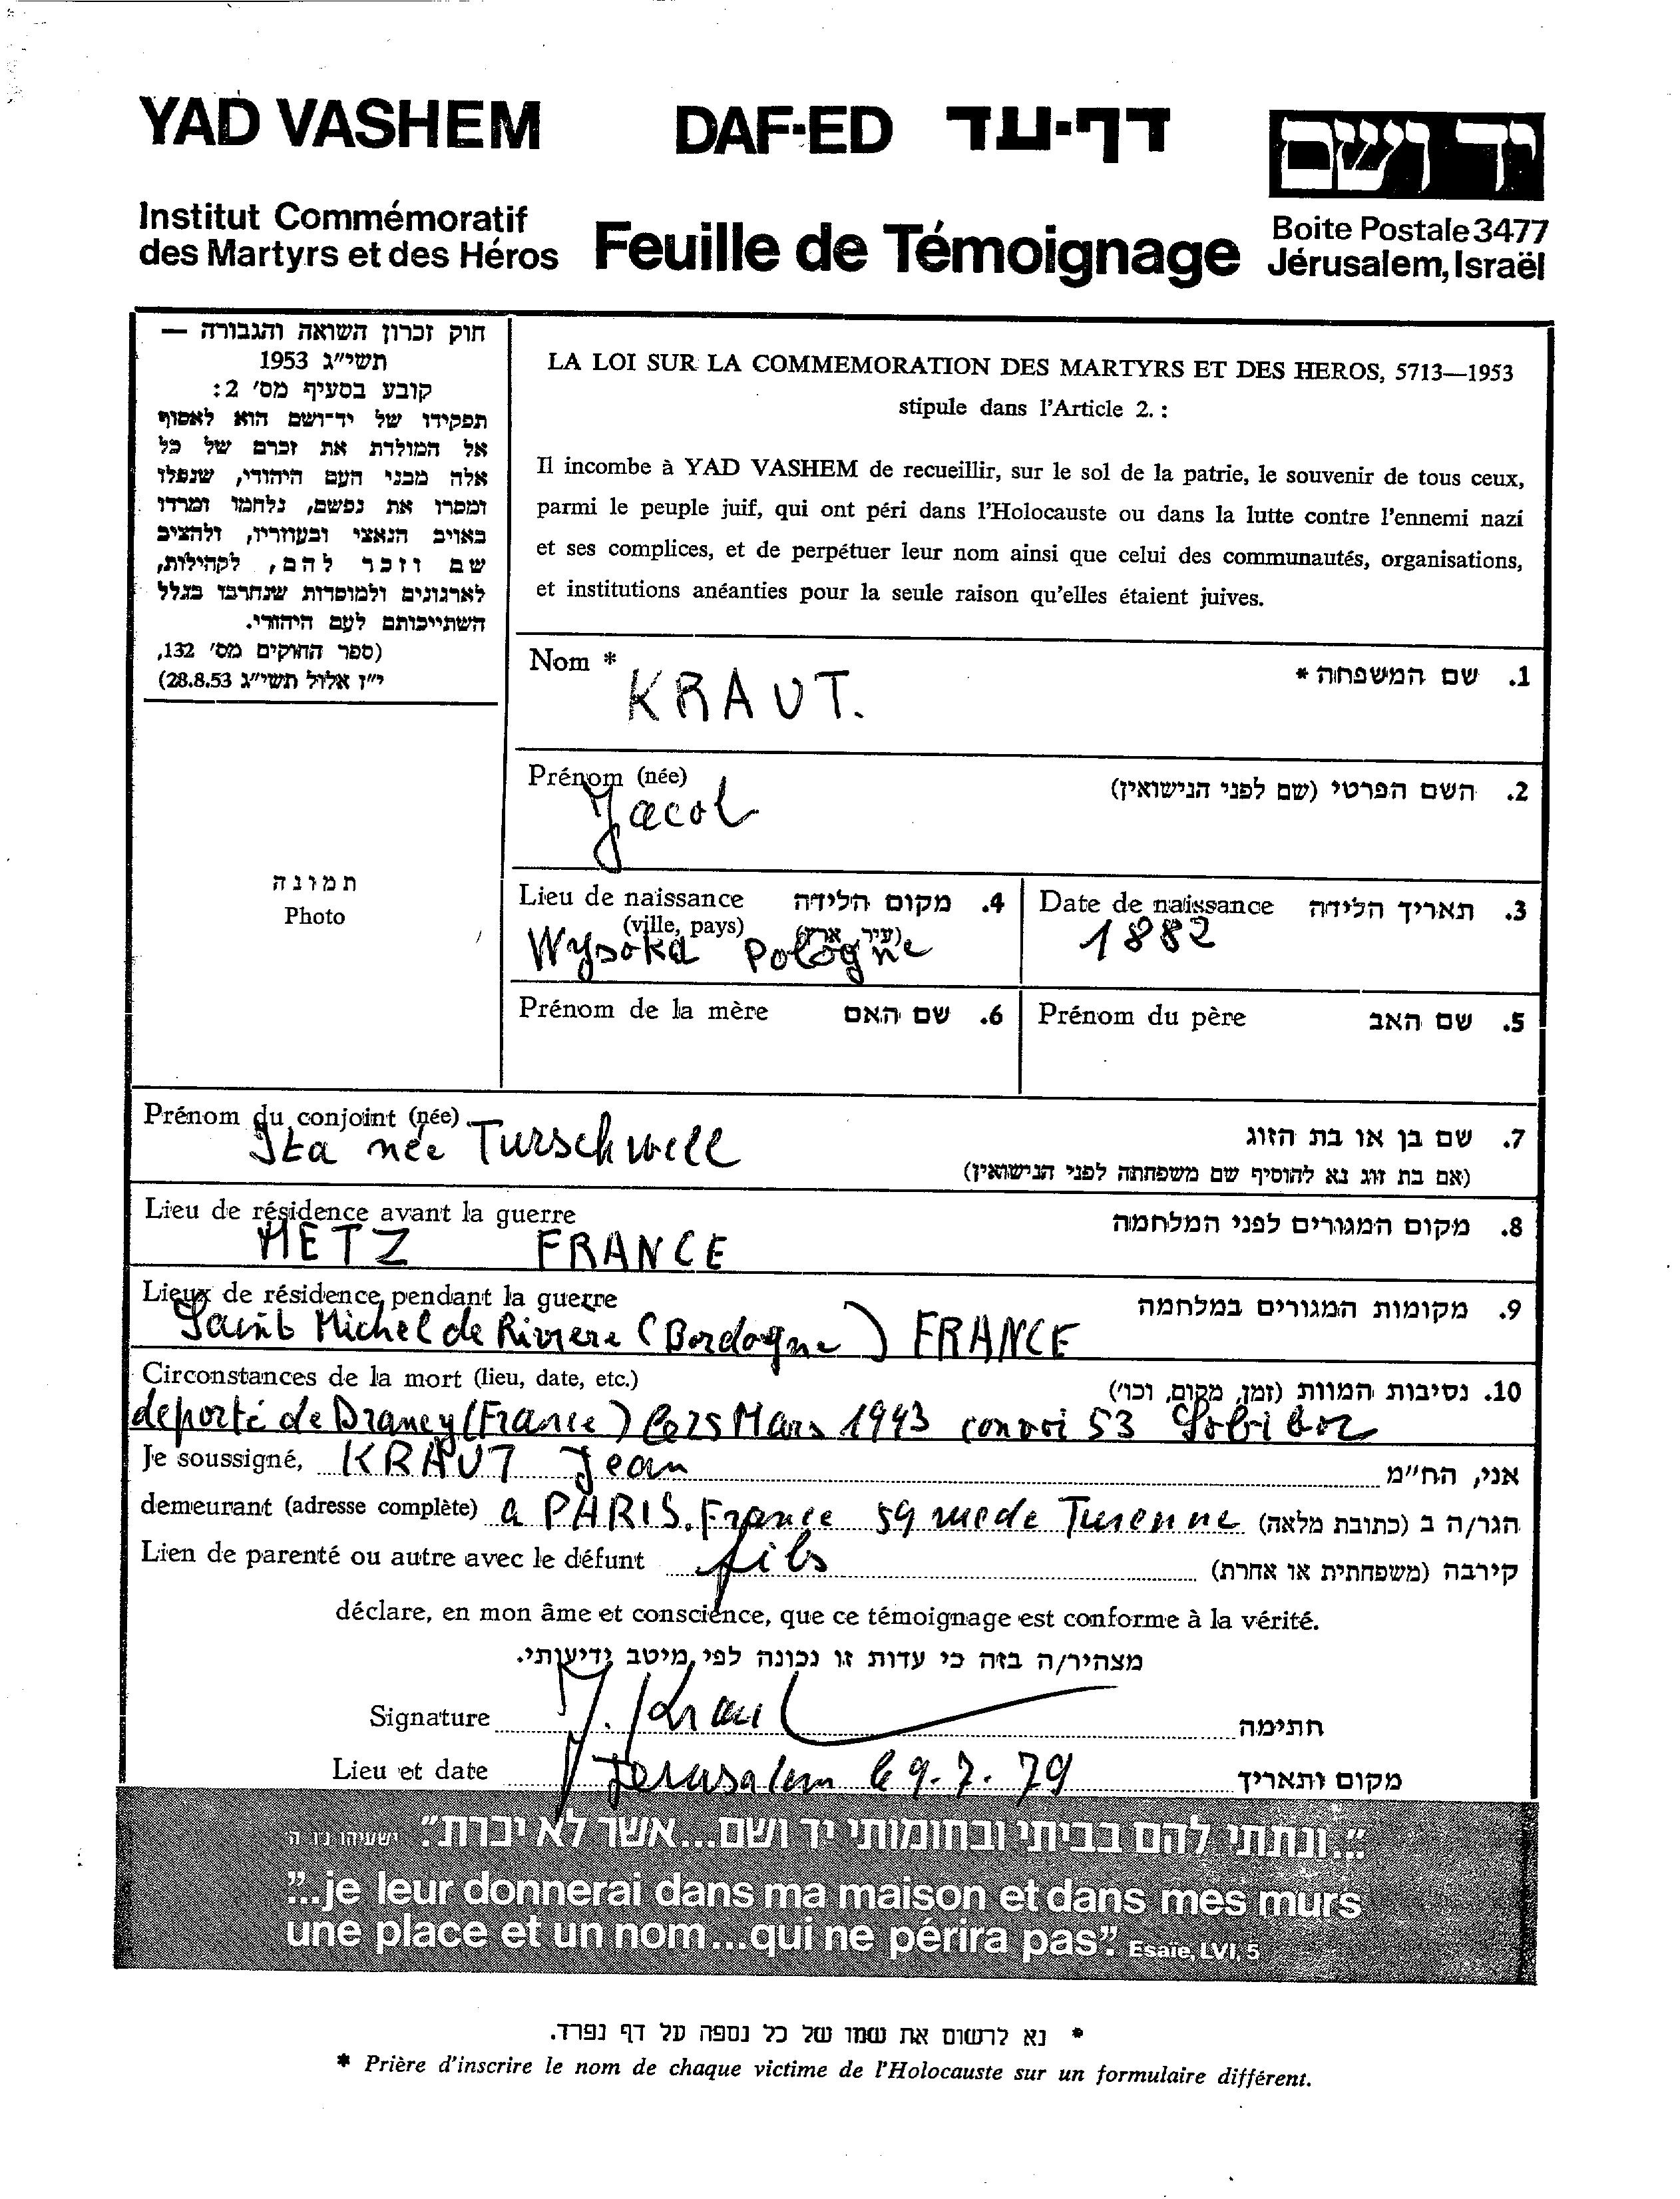 YAD VASHEM DAF-ED דף-עד יד ושם
Institut Commémoratif
des Martyrs et des Héros
Feuille de Témoignage
Boite Postale 3477
Jérusalem, Israël
חוק זכרון השואה והגבורה —
תשי״ג 1953
קובע בסעיף מס׳ 2:
תפקידו של יד־ושם הוא לאסוף
אל המולדת את זכרם של כל
אלה מבני העם היהודי, שנפלו
ומסרו את נפשם, נלחמו ומרדו
באויב הנאצי ובעוזריו, ולהציב
שם וזכר להם, לקהילות,
לארגונים ולמוסדות שנחרבו בגלל
השתייכותם לעם היהודי.
(ספר החוקים מס׳ 132,
י״ז אלול תשי״ג 28.8.53)
LA LOI SUR LA COMMEMORATION DES MARTYRS ET DES HEROS, 5713—1953
stipule dans l'Article 2. :
Il incombe à YAD VASHEM de recueillir, sur le sol de la patrie, le souvenir de tous ceux,
parmi le peuple juif, qui ont péri dans l'Holocauste ou dans la lutte contre l'ennemi nazi
et ses complices, et de perpétuer leur nom ainsi que celui des communautés, organisations,
et institutions anéanties pour la seule raison qu'elles étaient juives.
Nom * 1. שם המשפחה *
KRAUT.
Prénom (née) 2. השם הפרטי (שם לפני הנישואין)
Jacob
תמונה
Photo
Lieu de naissance 4. מקום הלידה
(ville, pays) (עיר, ארץ)
Wysoka Pologne
Date de naissance 3. תאריך הלידה
1882
Prénom de la mère 6. שם האם
Prénom du père 5. שם האב
Prénom du conjoint (née) 7. שם בן או בת הזוג
Ita née Turschwell
(אם בת זוג נא להוסיף שם משפחתה לפני הנישואין)
Lieu de résidence avant la guerre 8. מקום המגורים לפני המלחמה
METZ FRANCE
Lieux de résidence pendant la guerre 9. מקומות המגורים במלחמה
Saint Michel de Riviere (Dordogne) FRANCE
Circonstances de la mort (lieu, date, etc.) 10. נסיבות המוות (זמן, מקום, וכו׳)
deporté de Drancy (France) le 25 Mars 1943 convoi 53 Sobibor
Je soussigné, KRAUT Jean אני, הח״מ
demeurant (adresse complète) a PARIS. France 59 rue de Turenne הגר/ה ב (כתובת מלאה)
Lien de parenté ou autre avec le défunt fils קירבה (משפחתית או אחרת)
déclare, en mon âme et conscience, que ce témoignage est conforme à la vérité.
מצהיר/ה בזה כי עדות זו נכונה לפי מיטב ידיעותי.
Signature J. Kraut חתימה
Lieu et date Jerusalem le 9.7.79 מקום ותאריך
"..ונתתי להם בביתי ובחומותי יד ושם...אשר לא יכרת". ישעיהו נו ה
"...je leur donnerai dans ma maison et dans mes murs
une place et un nom...qui ne périra pas". Esaïe, LVI, 5
* נא לרשום את שמו של כל נספה על דף נפרד.
* Prière d'inscrire le nom de chaque victime de l'Holocauste sur un formulaire différent.